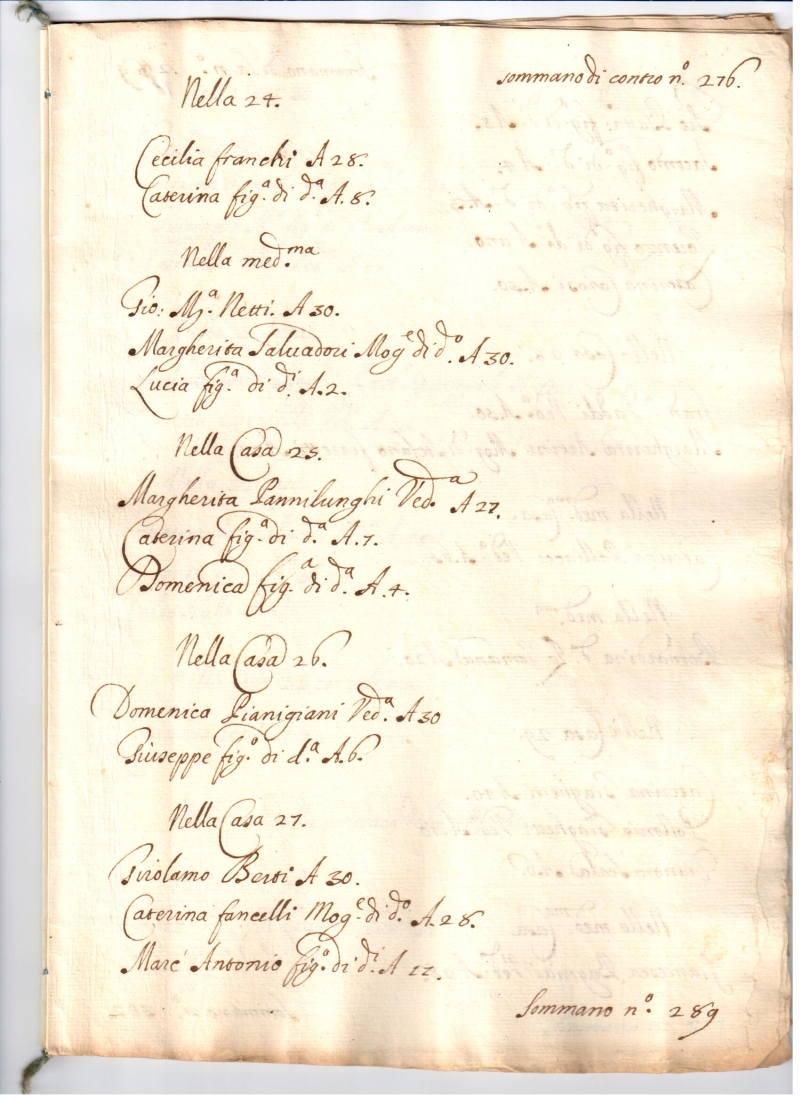 sommano di contro n.º 276.
Nella 24.
Cecilia franchi A 28.
Caterina fig.ª di d.ª A. 8.
Nella med.ma
Gio: M.ª Netti. A 30.
Margherita Salvadori Mog.e di d.º A 30.
Lucia fig.ª di d.i A. 2.
Nella Casa 25.
Margherita Pannilunghi Ved.ª A 27.
Caterina fig.ª di d.ª A. 7.
Domenica fig.ª di d.ª A. 4.
Nella Casa 26.
Domenica Pianigiani Ved.ª A 30
Giuseppe fig.º di d.ª A. 6.
Nella Casa 27.
Girolamo Berti A 30.
Caterina fancelli Mog.e di d.º A. 28.
Marc' Antonio fig.º di d.i A
Sommano n.º 289